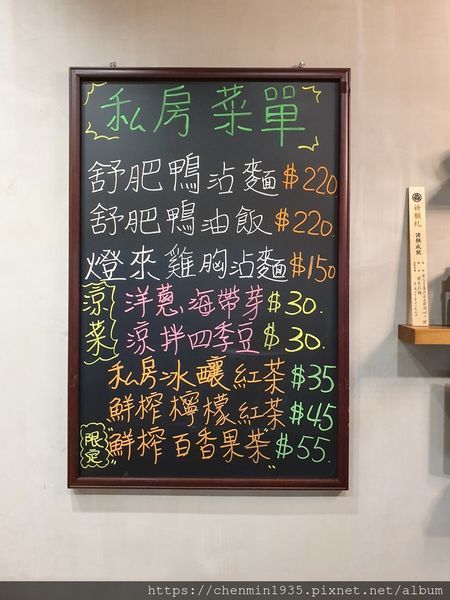 私房菜單
舒肥鴨沾麵 $220
舒肥鴨油飯 $220.
燈來雞胸沾麵 $150
涼菜
洋蔥海帶芽 $30.
涼拌四季豆 $30.
私房冰釀紅茶 $35
鮮榨檸檬紅茶 $45
限定
"鮮榨百香果茶" $55.
祈願札
諸願成就
https://chenmin1935.pixnet.net/album